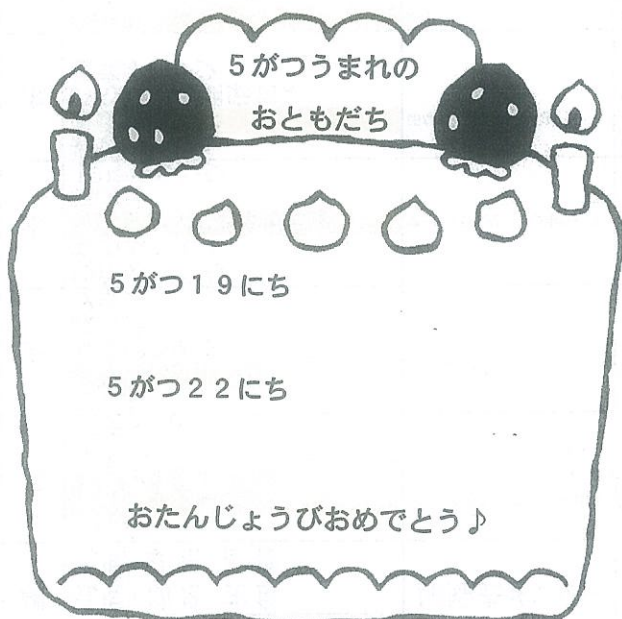 5がつうまれの
おともだち
5がつ19にち
5がつ22にち
おたんじょうびおめでとう♪